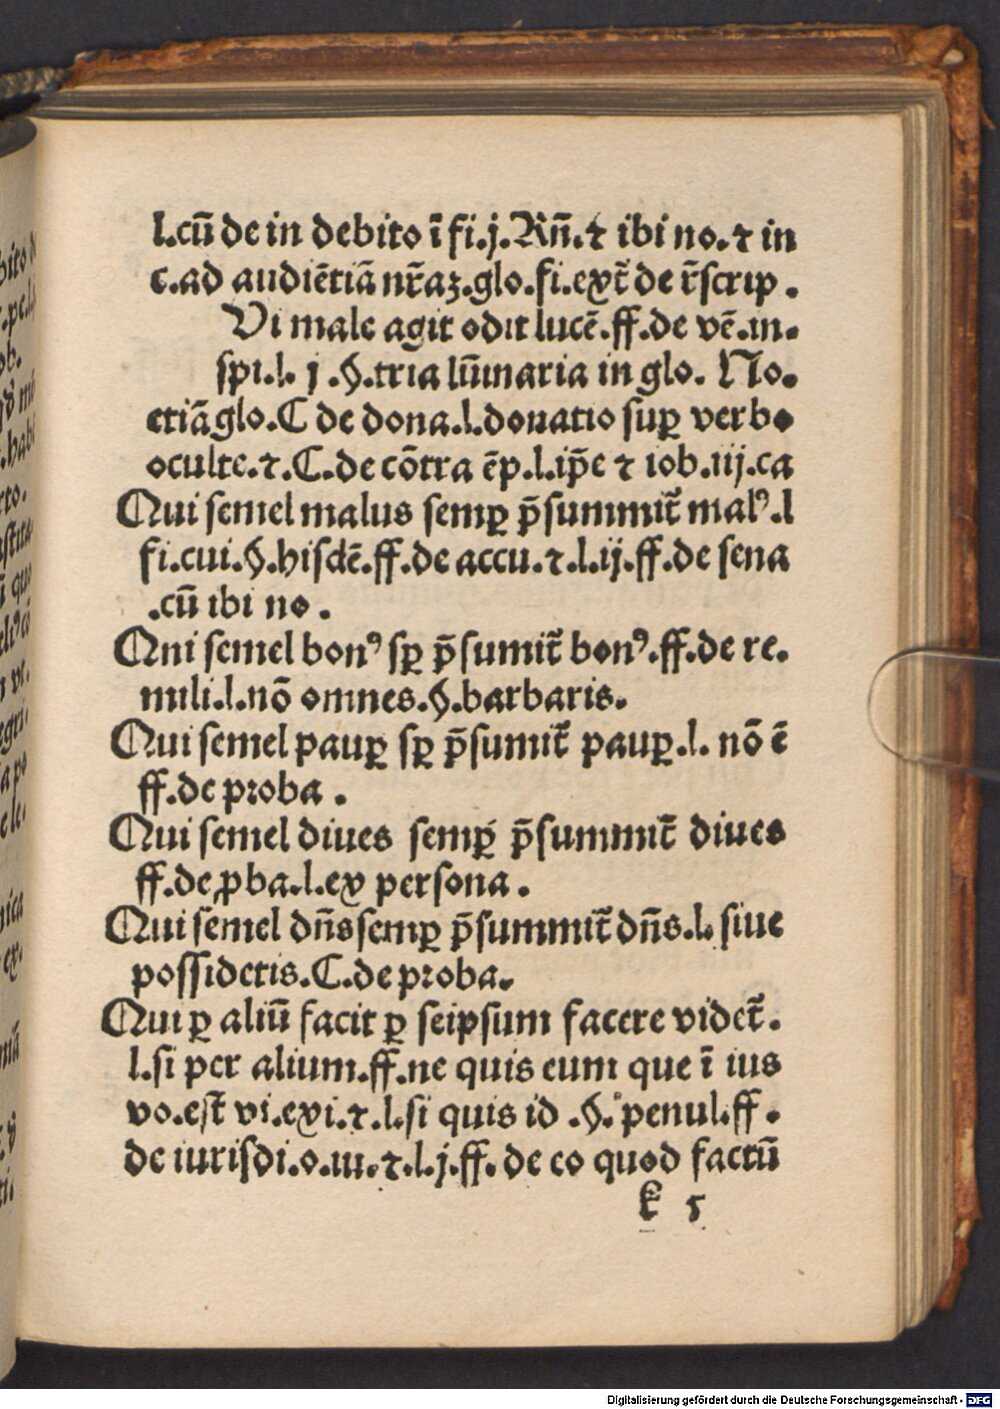 l.cū de in debito ī fi.j.Rñ.⁊ ibi no.⁊ in
c.ad audiētiā nr̄aꝫ.glo.fi.ext̄ de r̄scrip.
Vi male agit odit lucē.ff.de vē.in-
spi.l. j .§.tria lūinaria in glo. No.
etiā glo.C de dona.l.donatio suꝑ verbo
oculte.⁊.C.de cōtra ēp.l.ip̄e ⁊ iob.iij.ca
Qui semel malus semꝑ p̄summit̄ malꝰ.l
fi.cui.§.hisdē.ff.de accu.⁊.l.ij.ff.de sena
.cū ibi no.
Qni semel bonꝰ sꝑ p̄sumit̄ bonꝰ.ff.de re.
mili.l.nō omnes.§.barbaris.
Qui semel pauꝑ sꝑ p̄sumit̄ pauꝑ.l. nō ē
ff.de proba .
Qui semel diues semꝑ p̄summit̄ diues
ff.de ꝓba.l.ex persona.
Qui semel dn̄s semꝑ p̄summit̄ dn̄s.l. siue
possidetis.C.de proba.
Qui ꝑ aliū facit ꝑ seipsum facere videt̄.
l.si per alium.ff.ne quis eum que ī ius
vo.est̄ vi.exi.⁊.l.si quis id .§. penul.ff.
de iurisdi.o.iu.⁊.l.j.ff. de eo quod factū
k 5
Digitalisierung gefördert durch die Deutsche Forschungsgemeinschaft - DFG